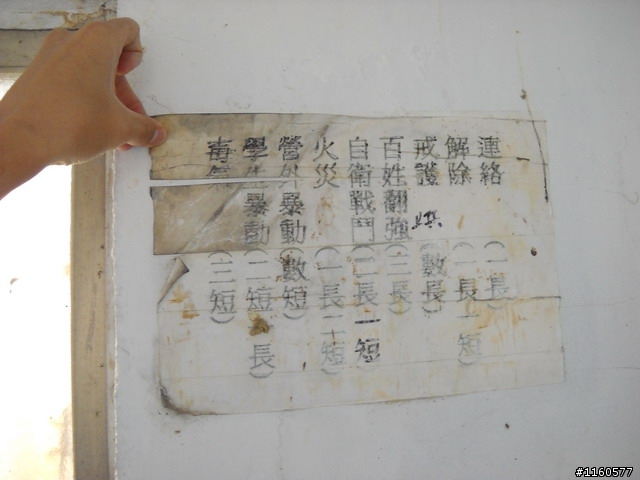 連絡 (一長)
解除 (一長一短)
戒護 (數長)
百姓翻強 (三長)
自衛戰鬥 (二長一短)
火災 (一長二短)
營外暴動 (數短)
學生暴動 (二短 長)
毒氣 (三短)
#1160577